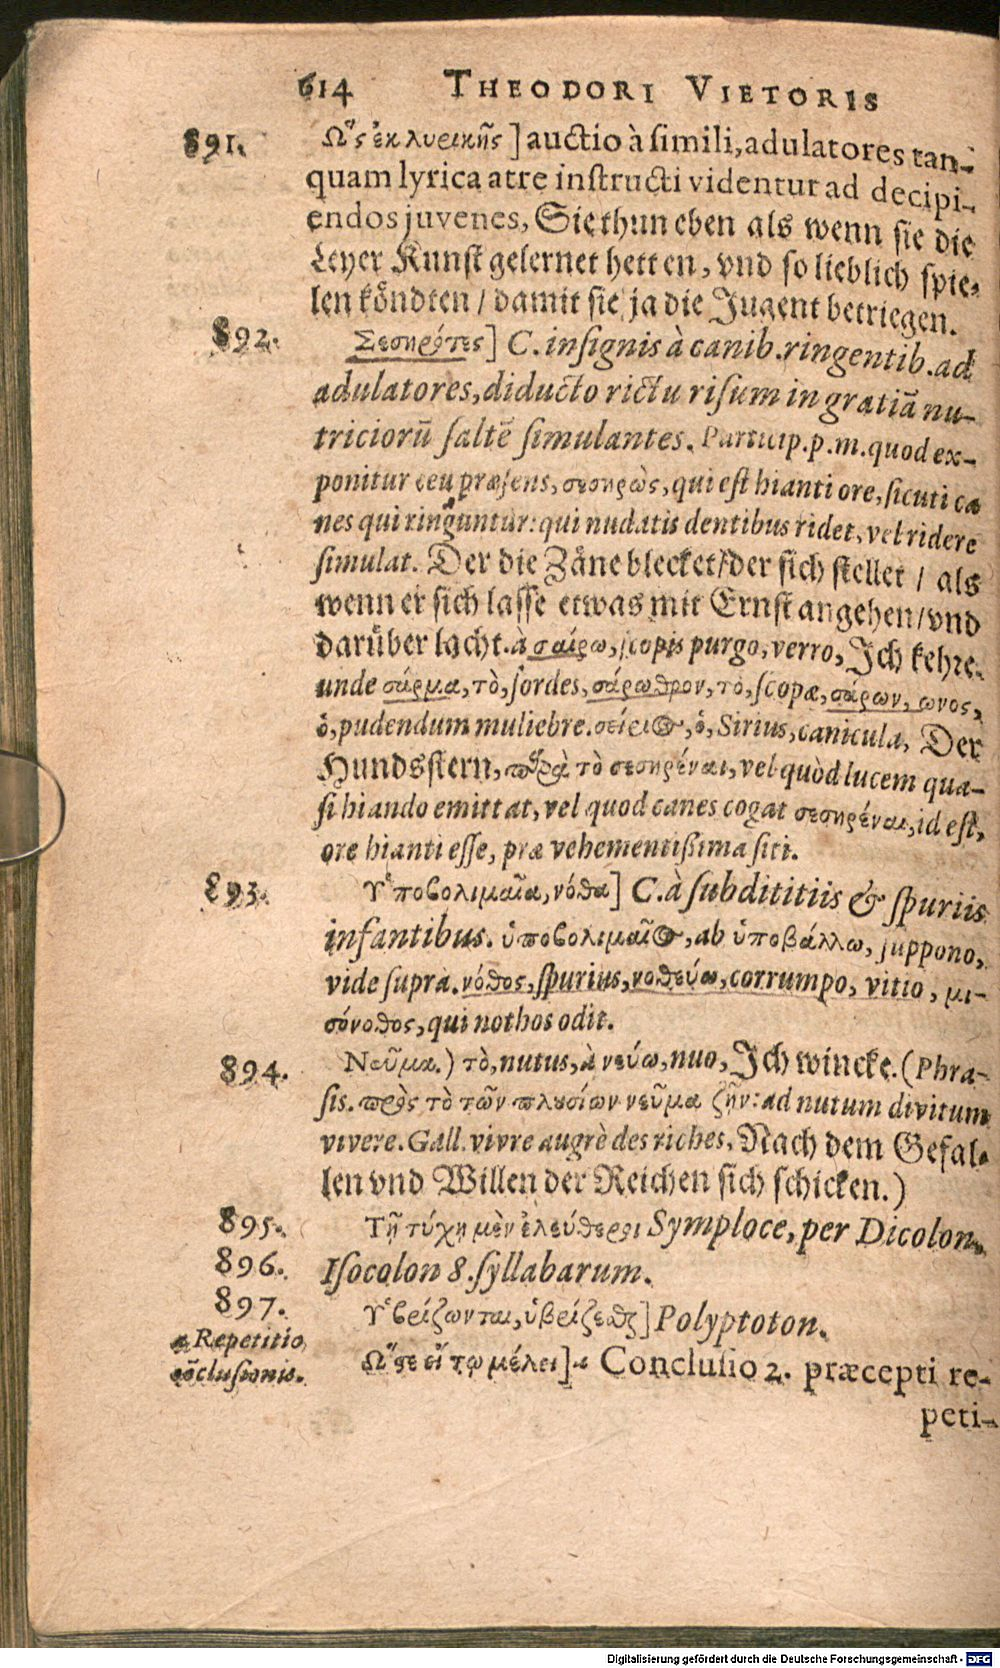 614 THEODORI VIETORIS
891. Ὡς ἐκ λυρικῆς] auctio à simili, adulatores tan-
quam lyrica atre instructi videntur ad decipi-
endos juvenes, Sie thun eben als wenn sie die
Leyer Kunst gelernet hetten, vnd so lieblich spie-
len köndten / damit sie ja die Jugent betriegen.
892. Σεσηρότες] C. insignis à canib. ringentib. ad
adulatores, diducto rictu risum in gratiā nu-
triciorū saltē simulantes. Particip. p. m. quod ex-
ponitur ceu præsens, σεσηρὼς, qui est hianti ore, sicuti ca
nes qui ringuntur: qui nudatis dentibus ridet, vel ridere
simulat. Der die Zäne blecket / der sich stellet / als
wenn er sich lasse etwas mit Ernst angehen / vnd
darüber lacht. à σαίρω, scopis purgo, verro, Ich kehre.
unde σάρμα, τὸ, sordes, σάρωθρον, τὸ, scopæ, σάρων, ωνος,
ὁ, pudendum muliebre. σείριος, ὁ, Sirius, canicula, Der
Hundsstern, παρὰ τὸ σεσηρέναι, vel quòd lucem qua-
si hiando emittat, vel quod canes cogat σεσηρέναι, id est,
ore hianti esse, præ vehementissima siti.
893. Ὑποβολιμαῖα, νόθα] C. à subdititiis & spuriis
infantibus. ὑποβολιμαῖος, ab ὑποβάλλω, suppono,
vide supra. νόθος, spurius, νοθεύω, corrumpo, vitio, μι-
σόνοθος, qui nothos odit.
894. Νεῦμα.) τὸ, nutus, à νεύω, nuo, Ich wincke. (Phra-
sis. πρὸς τὸ τῶν πλουσίων νεῦμα ζῆν: ad nutum divitum
vivere. Gall. vivre augrè des riches, Nach dem Gefal-
len vnd Willen der Reichen sich schicken.)
895. Τῇ τύχῃ μὲν ἐλεύθεροι Symploce, per Dicolon,
896. Isocolon 8. syllabarum.
897. Ὑβρίζονται, ὑβρίζεσθαι] Polyptoton.
a Repetitio
cōclusionis.
Ὥστε εἴ τῳ μέλει] a Conclusio 2. præcepti re-
peti-
Digitalisierung gefördert durch die Deutsche Forschungsgemeinschaft - DFG